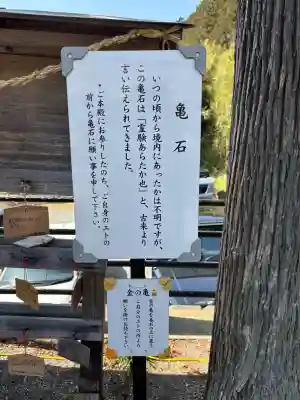 亀石
いつの頃から境内にあったかは不明ですが、
この亀石は「霊験あらたか也」と、古来より
言い伝えられてきました。
・ご本殿にお参りしたのち、ご自身のエトの
前から亀石に願い事を申して下さい。
金の亀